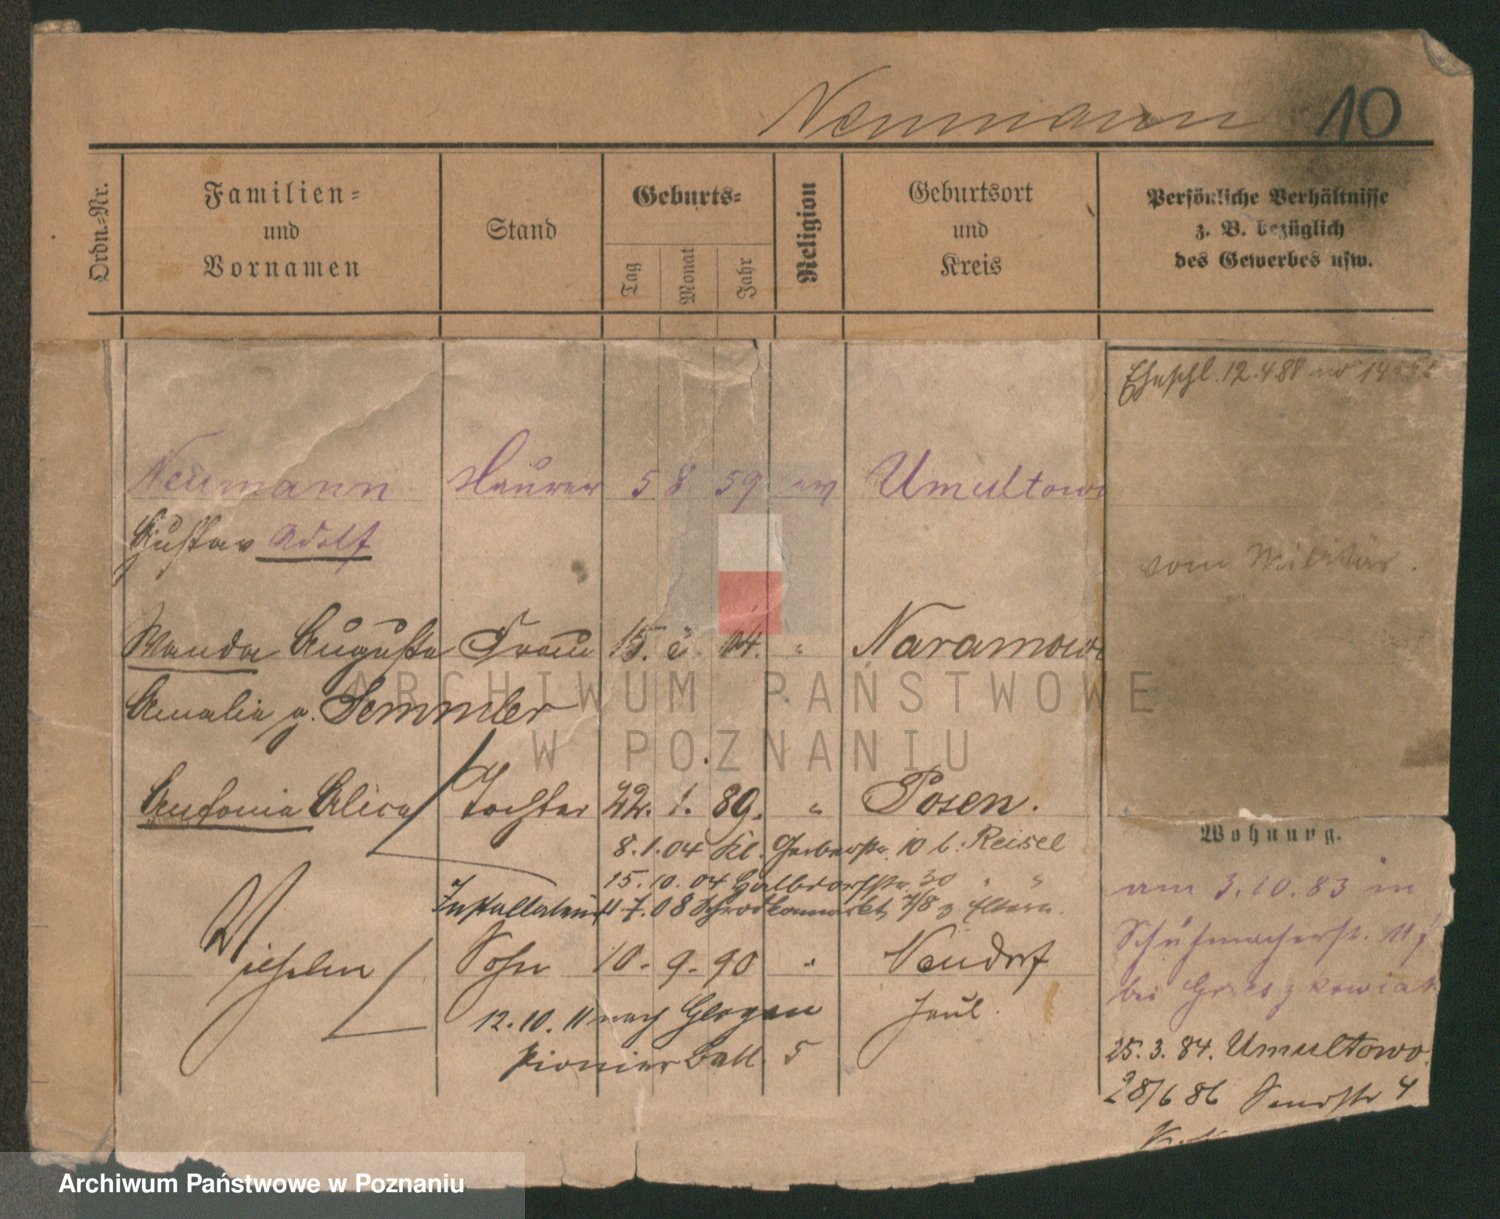 Neumann 10
Ordn.-Nr.
Familien-
und
Vornamen
Stand
Geburts-
Tag
Monat
Jahr
Religion
Geburtsort
und
Kreis
Persönliche Verhältnisse
z. B. bezüglich
des Gewerbes usw.
Eheschl. 12.4.88
Neumann Maurer 5 8 59 ev Umultowo
Gustav Adolf
vom Militär.
Wanda Augusta Frau 15. 64. " Naramowi
Amalia g. Semmler
ARCHIWUM PAŃSTWOWE
W POZNANIU
Antonie Alice Tochter 22. 1. 89. " Posen.
8.1.04 Kl. Gerberstr. 10 b. Reisel
15.10.04 Halbdorfstr. 30 " "
Installateur 11 7.08 Schrodkamarkt 7/8 z Eltern.
Wilhelm Sohn 10. 9. 90 " Neudorf
12.10.11 nach Glogau
Pionier Batl. 5
Wohnung.
am 3.10.83 in
Schuhmacherst. 11
bei Grzeszkowiak
25.3.84. Umultowo.
28/6 86 4
Archiwum Państwowe w Poznaniu